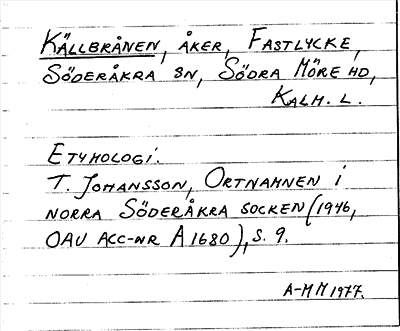 KÄLLBRÅNEN, ÅKER, FASTLYCKE,
SÖDERÅKRA SN, SÖDRA MÖRE HD,
KALM. L.
ETYMOLOGI.
T. JOHANSSON, ORTNAMNEN I
NORRA SÖDERÅKRA SOCKEN (1946,
OAU ACC-NR A 1680), S. 9.
A-M M 1977.